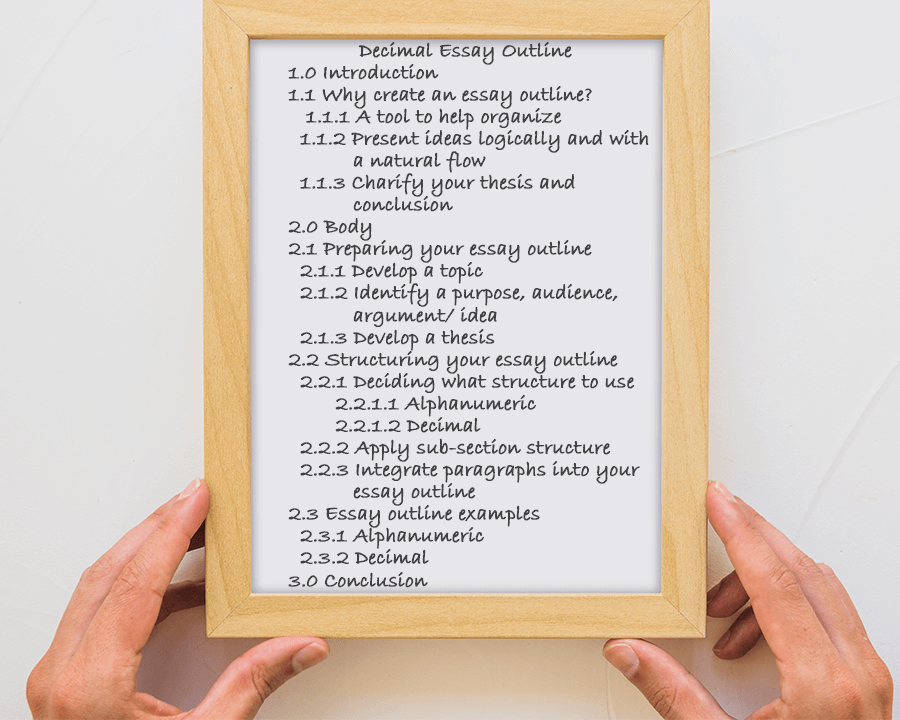 Decimal Essay Outline
1.0 Introduction
1.1 Why create an essay outline?
1.1.1 A tool to help organize
1.1.2 Present ideas logically and with
a natural flow
1.1.3 Charify your thesis and
conclusion
2.0 Body
2.1 Preparing your essay outline
2.1.1 Develop a topic
2.1.2 Identify a purpose, audience,
argument/ idea
2.1.3 Develop a thesis
2.2 Structuring your essay outline
2.2.1 Deciding what structure to use
2.2.1.1 Alphanumeric
2.2.1.2 Decimal
2.2.2 Apply sub-section structure
2.2.3 Integrate paragraphs into your
essay outline
2.3 Essay outline examples
2.3.1 Alphanumeric
2.3.2 Decimal
3.0 Conclusion